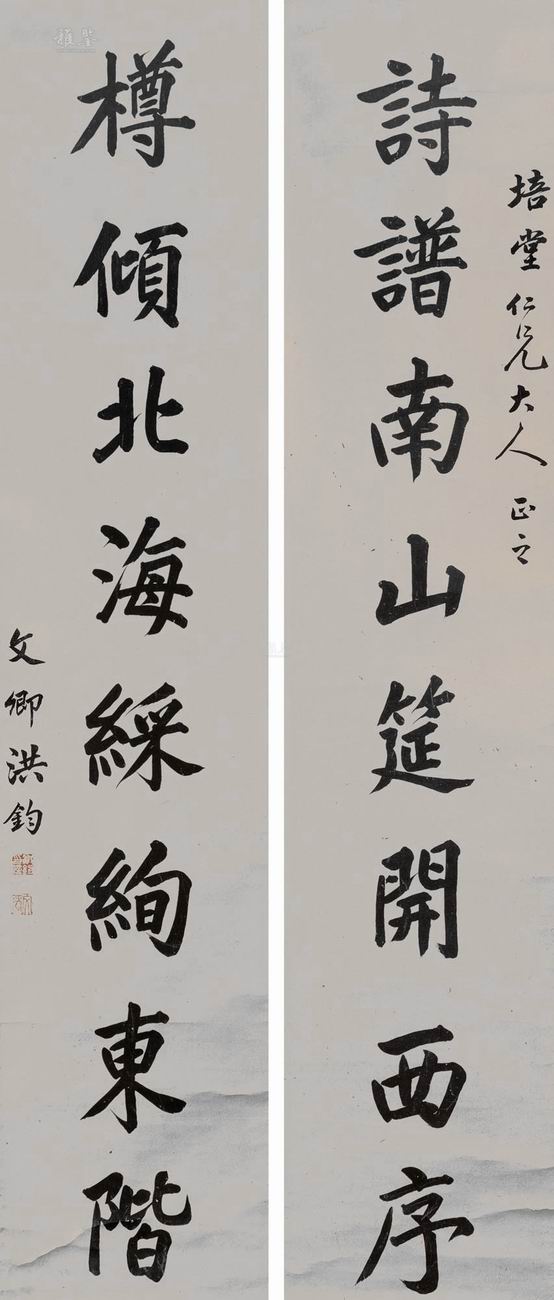 培堂仁兄大人正之
詩譜南山筵開西序
樽傾北海綵絢東階
文卿洪鈞
雅鑒